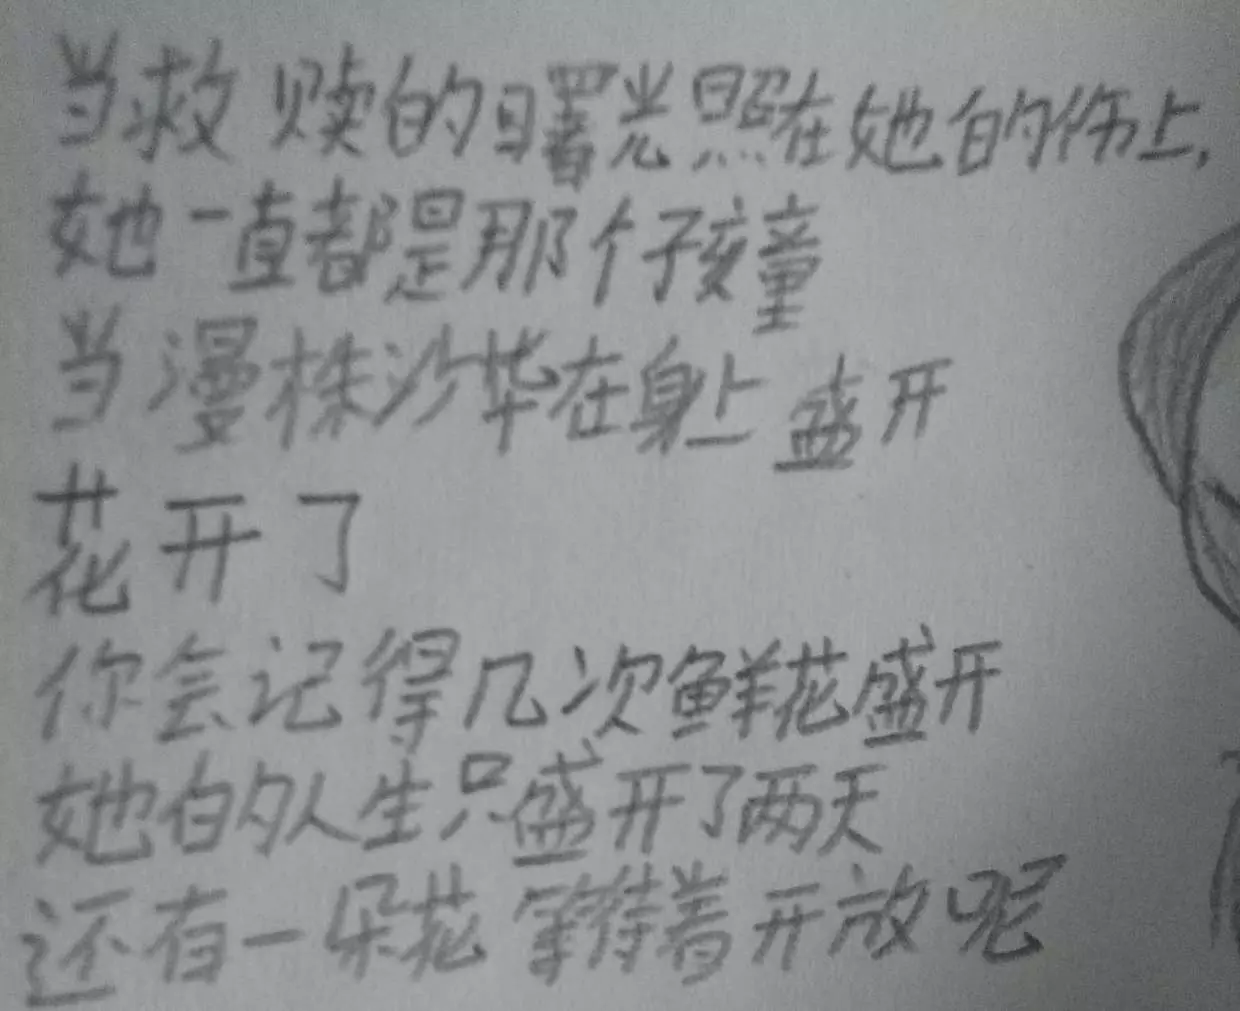 当救赎的曙光照在她的伤上,
她一直都是那个孩童
当漫株沙华在身上盛开
花开了
你会记得几次鲜花盛开
她的人生只盛开了两天
还有一朵花等待着开放呢